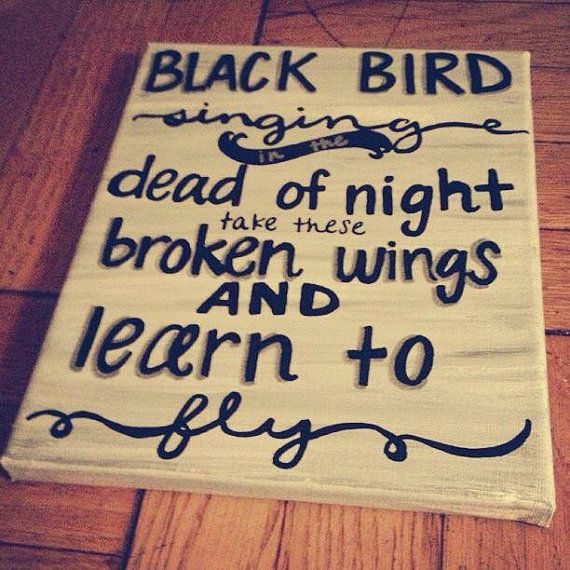 BLACK BIRD
singing
in the
dead of night
take these
broken wings
AND
learn to
fly